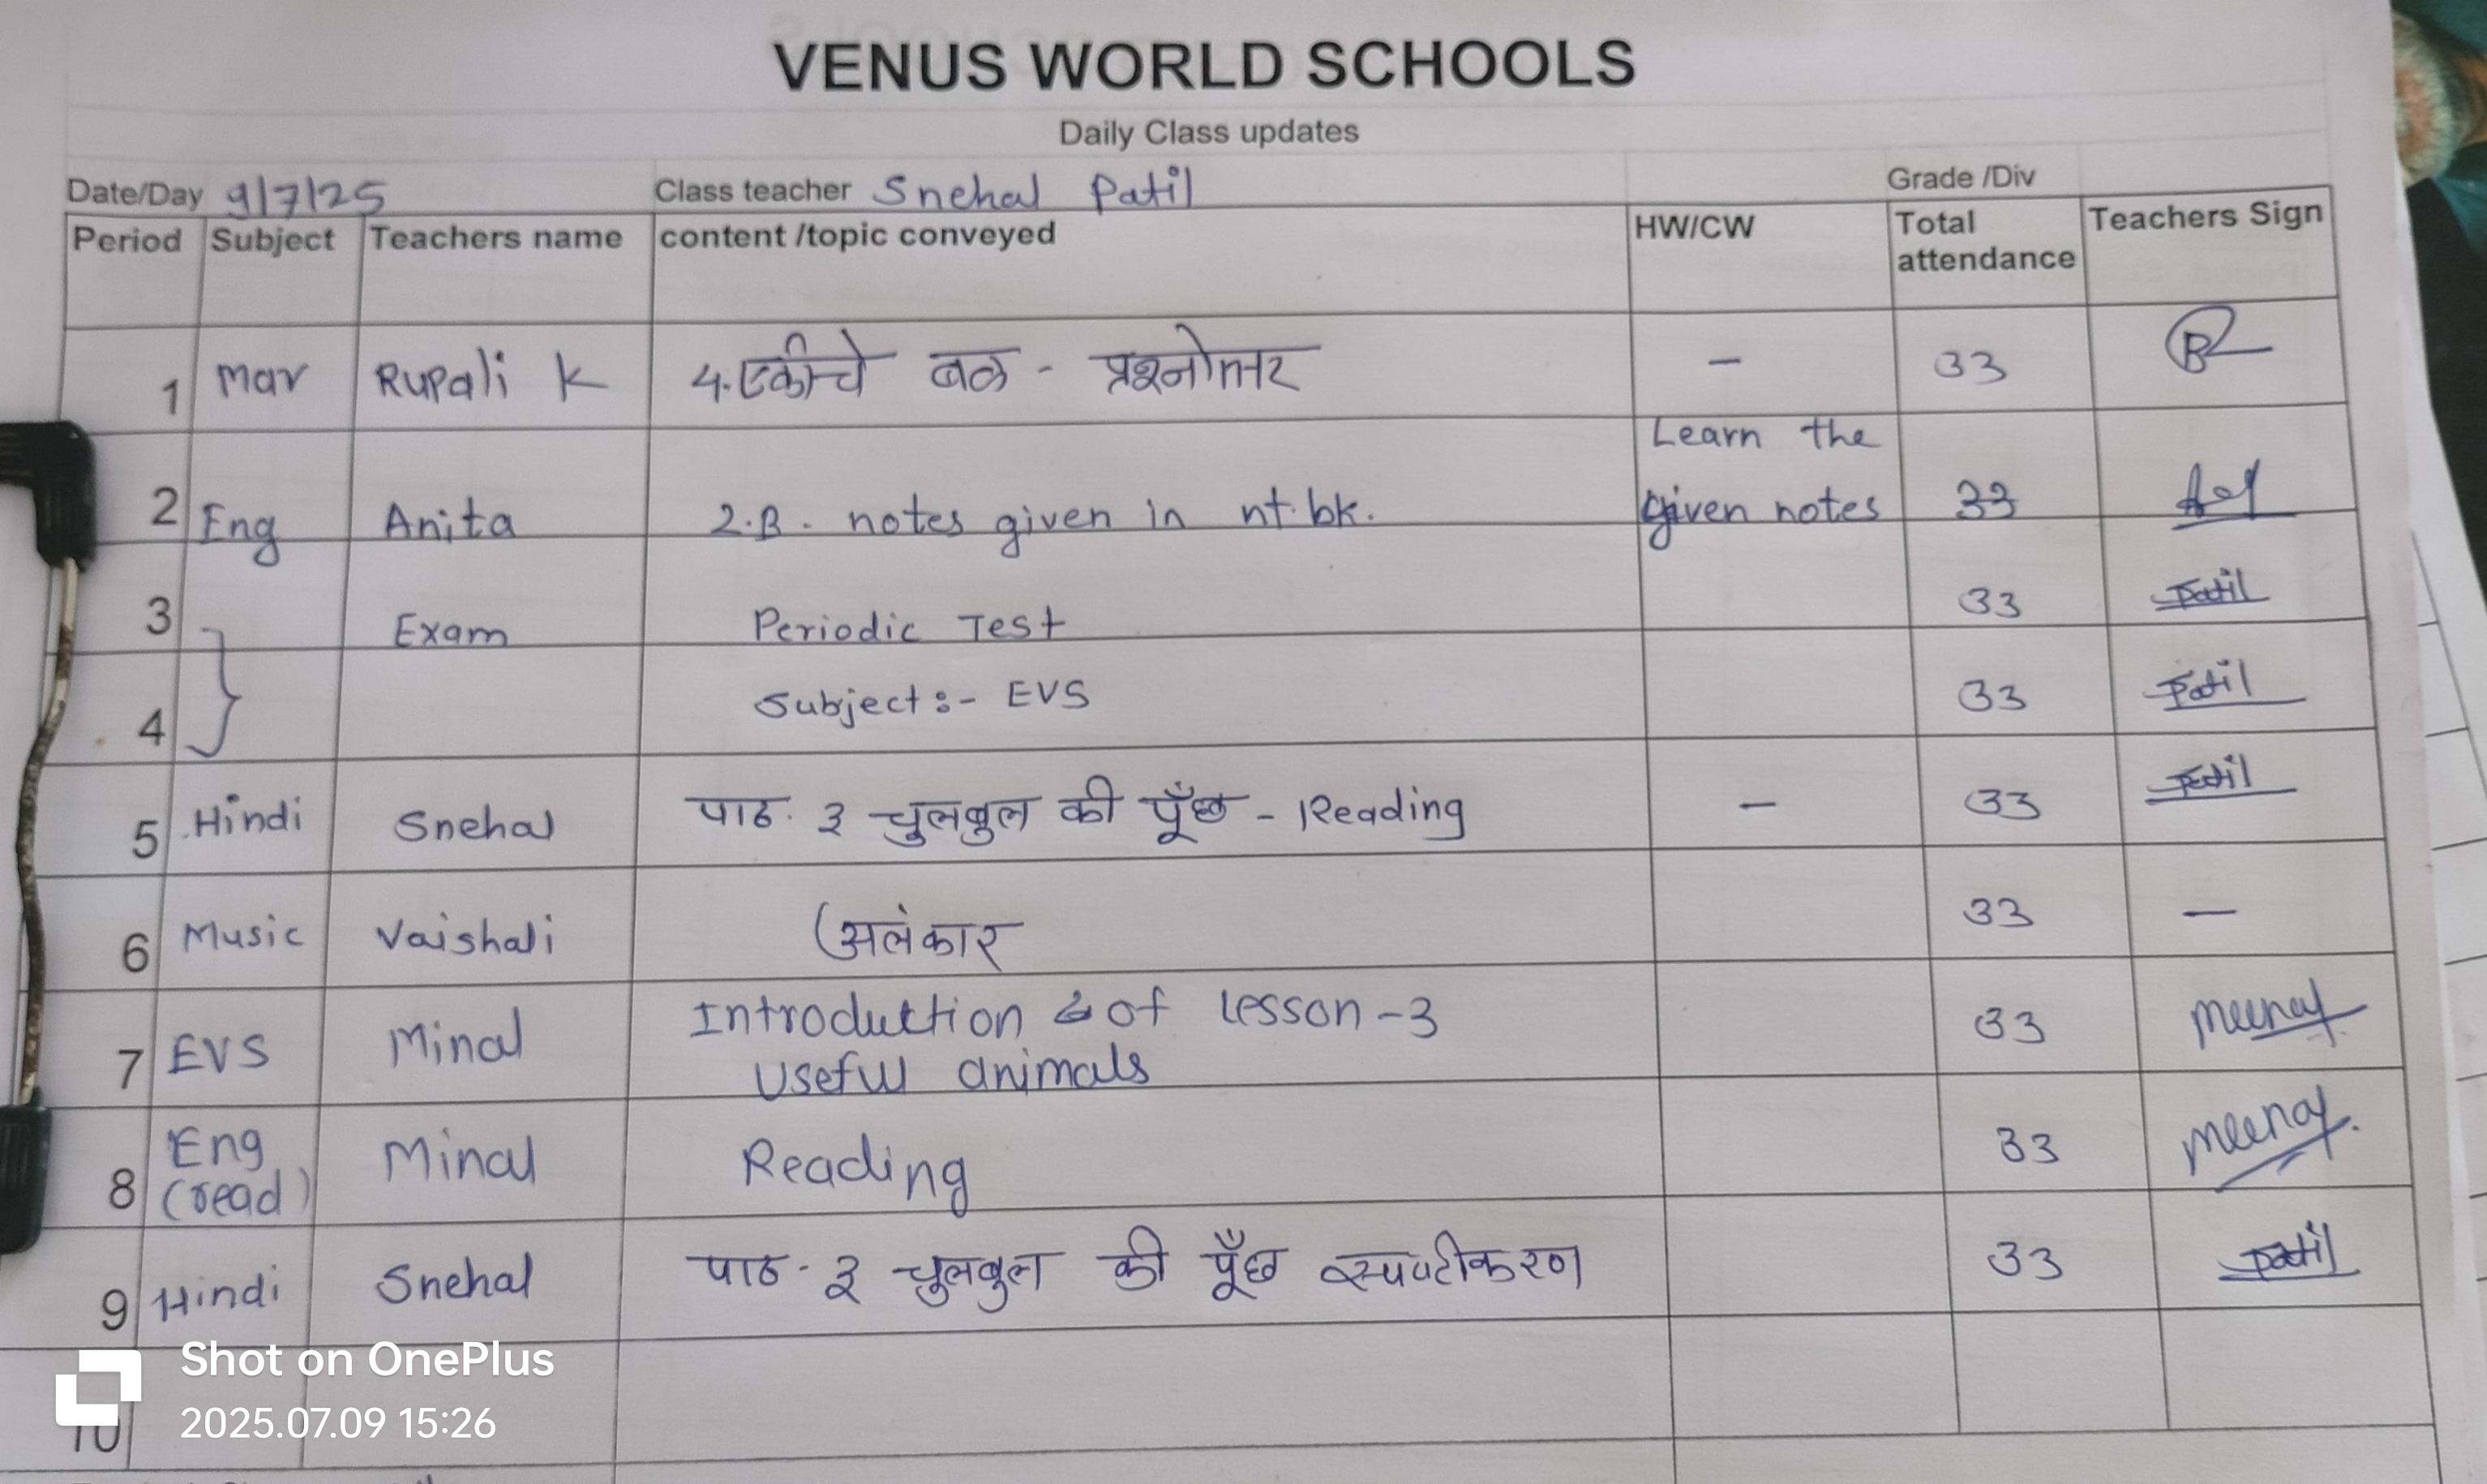 VENUS WORLD SCHOOLS
Daily Class updates
Date/Day 9/7/25 Class teacher Snehal Patil Grade /Div
Period Subject Teachers name content /topic conveyed HW/CW Total attendance Teachers Sign
1 Mar Rupali K 4. एकीचे बळ - प्रश्नोत्तर - 33
2 Eng Anita 2.B. notes given in nt.bk. Learn the given notes 33
3 Exam Periodic Test 33 Patil
4 Subject :- EVS 33 Patil
5 Hindi Snehal पाठ. ३ चुलबुल की पूँछ - Reading - 33 Patil
6 Music Vaishali अलंकार 33 -
7 EVS Minal Introduction of lesson-3 33
useful animals
8 Eng (read) Minal Reading 33
9 Hindi Snehal पाठ. ३ चुलबुल की पूँछ स्पष्टीकरण 33 Patil
10
Shot on OnePlus
2025.07.09 15:26